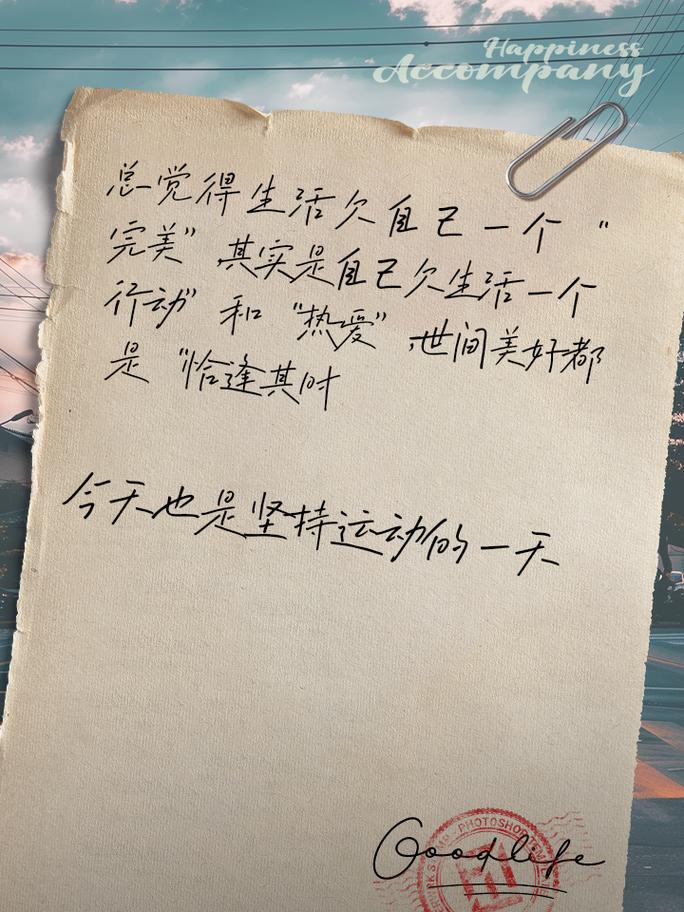 Happiness
Accompany
总觉得生活欠自己一个 “
完美” 其实是自己欠生活一个
行动” 和 “热爱” ,世间美好都
是 “恰逢其时
今天也是坚持运动的一天
PHOTOSHOP
Goodlife